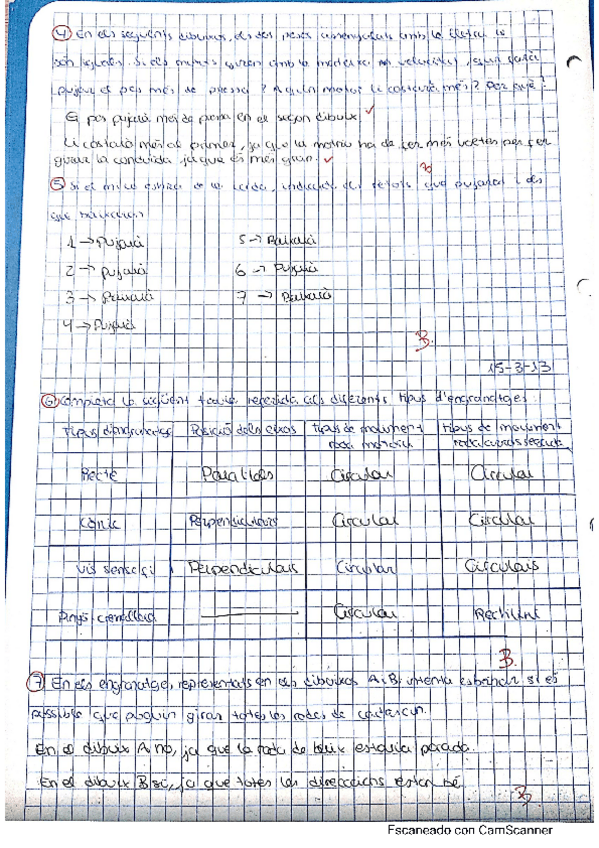 ④ En els següents dibuixos, els dos pesos amenejats amb la lletra
són iguals. Si els motors giren amb la mateixa velocitat, quin farà
pujar el pes més de pressa? A quin motor li costarà més? Per què?
El pes pujarà més de pressa en el segon dibuix.
Li costarà més al primer, ja que la motriu ha de fer més voltes per fer
girar la conduida, ja que és més gran.
⑤ Si el motor estira de la corda, indica els que pujaran i els
que baixaran
1 → Pujarà 5 → Baixarà
2 → pujarà 6 → Pujarà
3 → Baixarà 7 → Baixarà
4 → Pujarà
B
15-3-13
⑥ Completa la següent taula referida als diferents tipus d'engranatges:
Tipus d'engranatges Posició dels eixos Tipus de moviment roda motriu Tipus de moviment roda conduïda
Recte Paral·leles Circular Circular
Cònic Perpendiculars Circular Circular
Vis sense fi Perpendiculars Circular Circulars
Pinyó cremallera — Circular Rectilini
B
⑦ En els engranatges representats en els dibuixos A i B, intenta esbrinar si és
possible que puguin girar totes les rodes de cadascun.
En el dibuix A no, ja que la roda de baix estaria parada.
En el dibuix B sí, ja que totes les direccions estan bé.
B
Escaneado con CamScanner